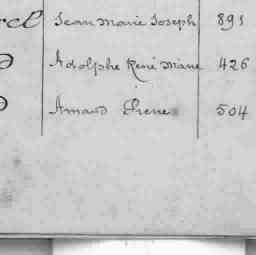 rcel Jean Marie Joseph 891
Adolphe René Marie 426
Amand Pierre 504